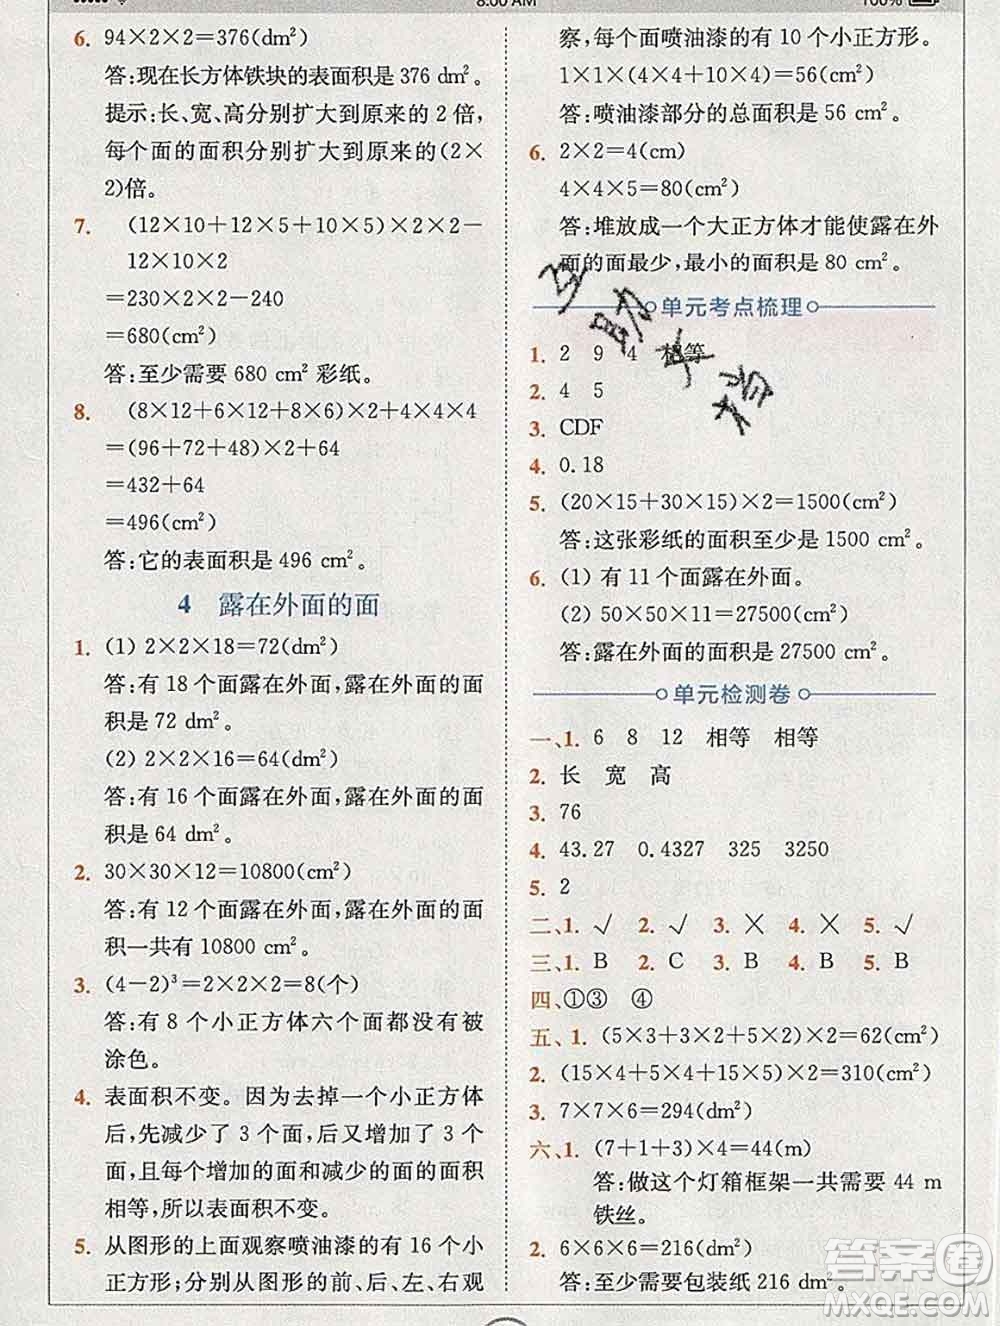 8:00 AM
100%
6. 94×2×2=376(dm²)
答:现在长方体铁块的表面积是 376 dm²。
提示:长、宽、高分别扩大到原来的 2 倍,
每个面的面积分别扩大到原来的(2×
2)倍。
7. (12×10+12×5+10×5)×2×2-
12×10×2
=230×2×2-240
=680(cm²)
答:至少需要 680 cm² 彩纸。
8. (8×12+6×12+8×6)×2+4×4×4
=(96+72+48)×2+64
=432+64
=496(cm²)
答:它的表面积是 496 cm²。
4 露在外面的面
1. (1) 2×2×18=72(dm²)
答:有 18 个面露在外面,露在外面的面
积是 72 dm²。
(2) 2×2×16=64(dm²)
答:有 16 个面露在外面,露在外面的面
积是 64 dm²。
2. 30×30×12=10800(cm²)
答:有 12 个面露在外面,露在外面的面
积一共有 10800 cm²。
3. (4-2)³=2×2×2=8(个)
答:有 8 个小正方体六个面都没有被
涂色。
4. 表面积不变。因为去掉一个小正方体
后,先减少了 3 个面,后又增加了 3 个
面,且每个增加的面和减少的面的面积
相等,所以表面积不变。
5. 从图形的上面观察喷油漆的有 16 个小
正方形;分别从图形的前、后、左、右观
察,每个面喷油漆的有 10 个小正方形。
1×1×(4×4+10×4)=56(cm²)
答:喷油漆部分的总面积是 56 cm²。
6. 2×2=4(cm)
4×4×5=80(cm²)
答:堆放成一个大正方体才能使露在外
面的面最少,最小的面积是 80 cm²。
单元考点梳理
1. 2 9 4 相等
2. 4 5
3. CDF
4. 0.18
5. (20×15+30×15)×2=1500(cm²)
答:这张彩纸的面积至少是 1500 cm²。
6. (1) 有 11 个面露在外面。
(2) 50×50×11=27500(cm²)
答:露在外面的面积是 27500 cm²。
单元检测卷
一、1. 6 8 12 相等 相等
2. 长 宽 高
3. 76
4. 43.27 0.4327 325 3250
5. 2
二、1. √ 2. √ 3. × 4. × 5. √
三、1. B 2. C 3. B 4. A 5. B
四、①③ ④
五、1. (5×3+3×2+5×2)×2=62(cm²)
2. (15×4+5×4+15×5)×2=310(cm²)
3. 7×7×6=294(dm²)
六、1. (7+1+3)×4=44(m)
答:做这个灯箱框架一共需要 44 m
铁丝。
2. 6×6×6=216(dm²)
答:至少需要包装纸 216 dm²。
答案圈
MXQE.COM